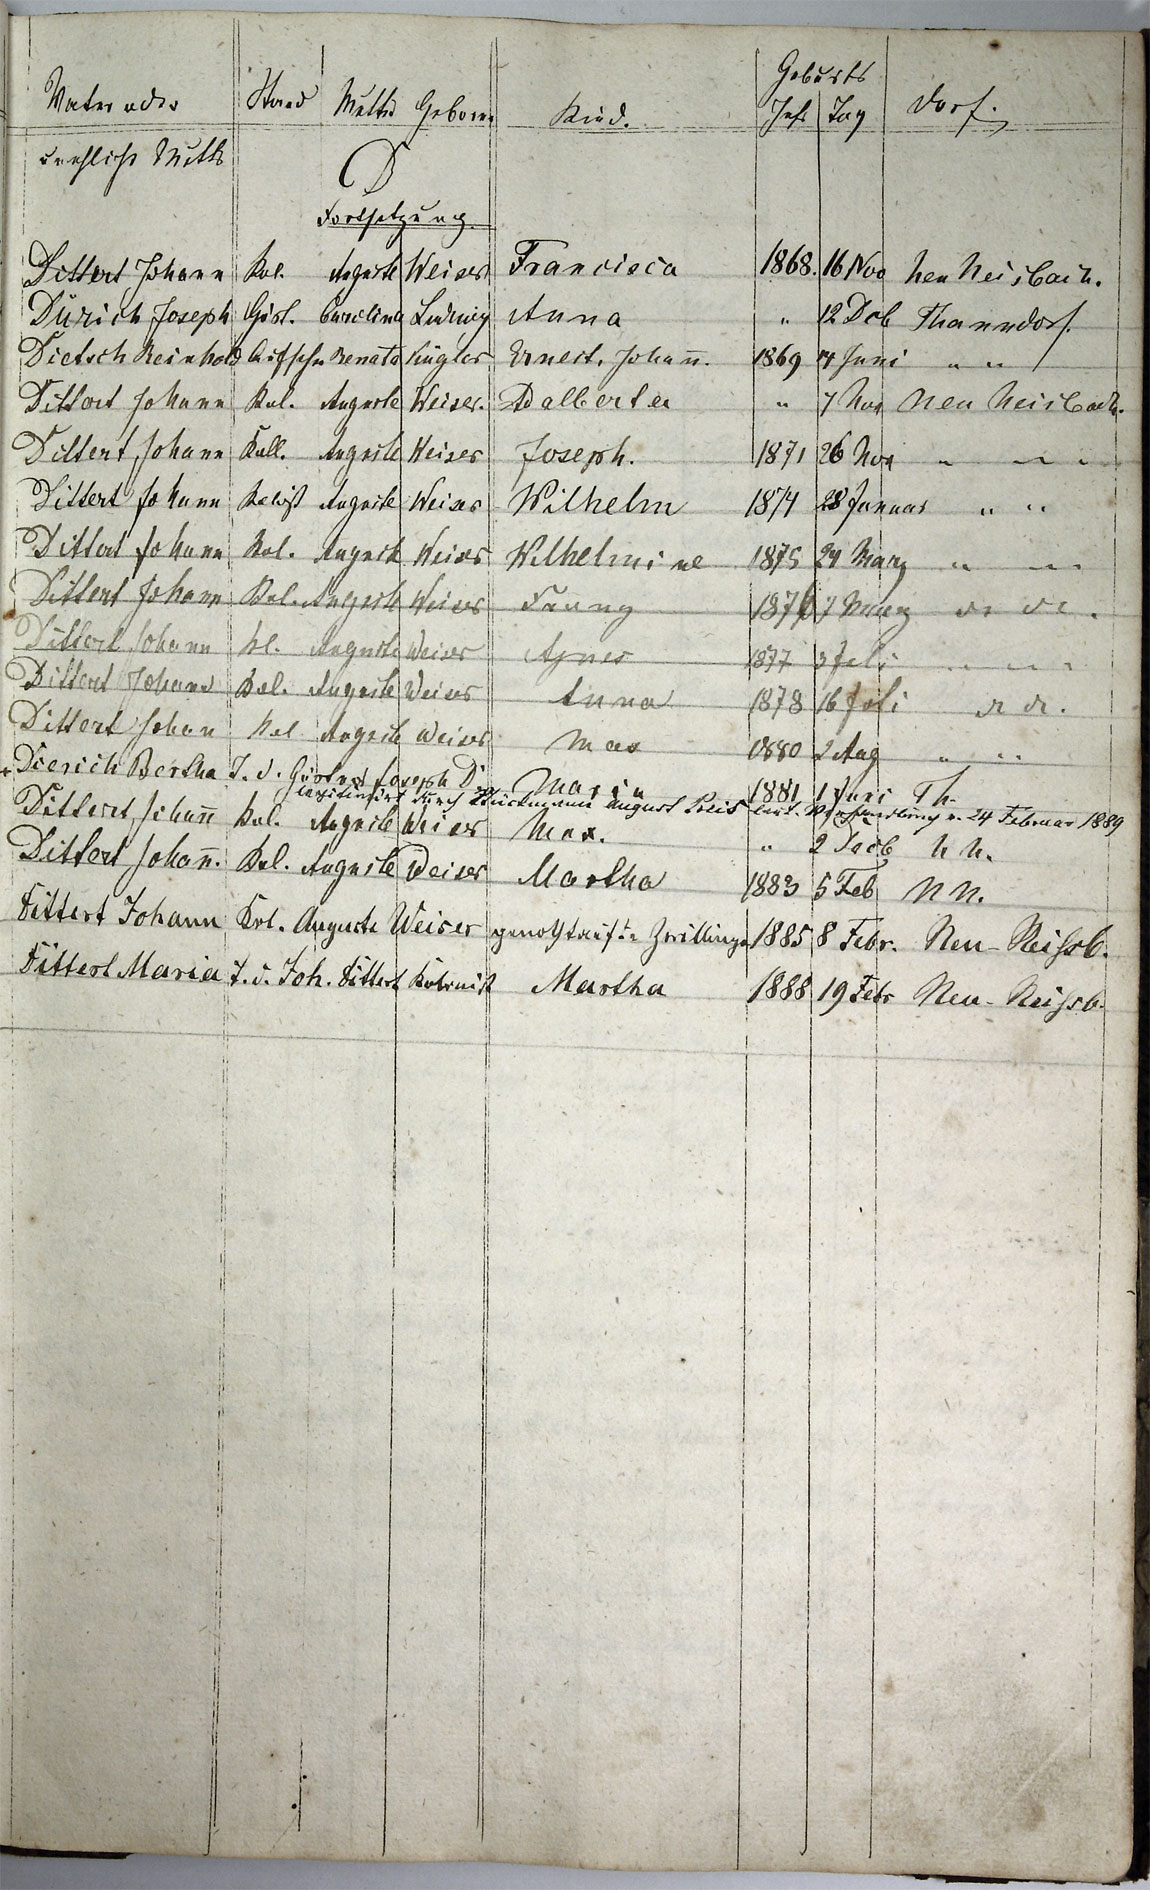 Geburts
Vater oder Stand Mutter Geborne Kind. Jahr Tag Dorf.
unehliche Mutter
D
Fortsetzung
Dittert Johann Kol. Auguste Weiser Francisca 1868. 16 Nov Neu Neisbach.
Dürich Joseph Gärt. Carolina Ludwig Anna " 12 Dcb Thanndorf.
Dietsch Reinhold Renata Kugler Ernest. Johan̄. 1869 4 Juni " "
Dittert Johann Kol. Auguste Weiser. Adalberta " 7 Nov Neu Neisbach.
Dittert Johann Koll. Auguste Weiser Joseph. 1871 26 Nov " " "
Dittert Johann Kolist Auguste Weiser Wilhelm 1874 28 Januar " "
Dittert Johann Kol. Auguste Weiser Wilhelmine 1875 29 März " "
Dittert Johann Kol. Auguste Weiser Fanny 1876 7 März
Dittert Johann Kl. Auguste Weiser Agnes 1877 3 Juli " " "
Dittert Johann Kol. Auguste Weiser Anna 1878 16 Juli
Dittert Johan Kol Auguste Weiser Max 1880 2 Aug " "
Dierich Bertha T. d. Joseph D. Maria 1881 1 Juni Th.
legitimirt durch August Preis laut Verhandlung v. 24 Februar 1889
Dittert Johan̄ Kol. Auguste Weiser Max. " 2 N N.
Dittert Johan̄. Kol. Auguste Weiser Martha 1883 5 Feb N N.
Dittert Johann Kol. Auguste Weiser genothtaufte Zwillinge 1885 8 Febr. Neu-Neissb.
Dittert Maria T. d. Joh. Dittert Kolonist Martha 1888 19 Febr Neu-Neissb.